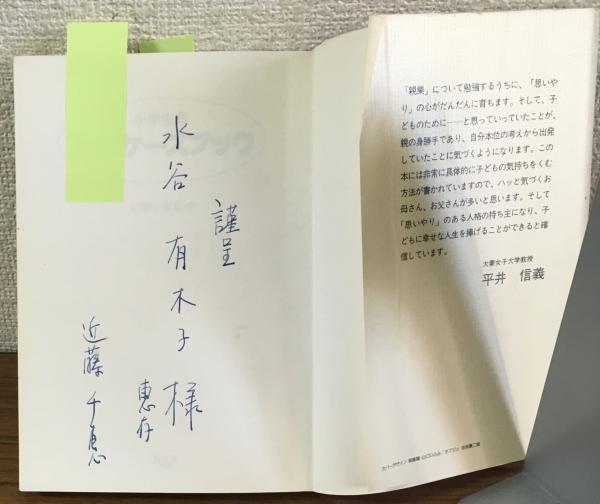 「親業」について勉強するうちに、「思いや
り」の心がだんだんに育ちます。そして、子
どものために——と思っていっていたことが、
親の身勝手であり、自分本位の考えから出発
していたことに気づくようになります。この
本には非常に具体的に子どもの気持ちをくむ
方法が書かれていますので、ハッと気づくお
母さん、お父さんが多いと思います。そして
「思いやり」のある人格の持ち主になり、子
どもに幸せな人生を捧げることができると確
信しています。
大妻女子大学教授
平井 信義
謹呈
水谷 有木子 様
恵存
近藤 千恵
カバーデザイン